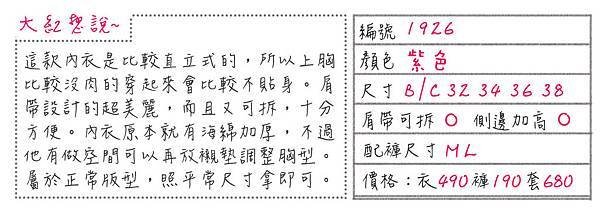 大紅想說~
這款內衣是比較直立式的，所以上胸
比較沒肉的穿起來會比較不貼身。肩
帶設計的超美麗，而且又可拆，十分
方便。內衣原本就有海綿加厚，不過
他有做空間可以再放襯墊調整胸型。
屬於正常版型，照平常尺寸拿即可。
編號 1926
顏色 紫色
尺寸 B/C 32 34 36 38
肩帶可拆 O 側邊加高 O
配褲尺寸 M L
價格：衣490褲190套680